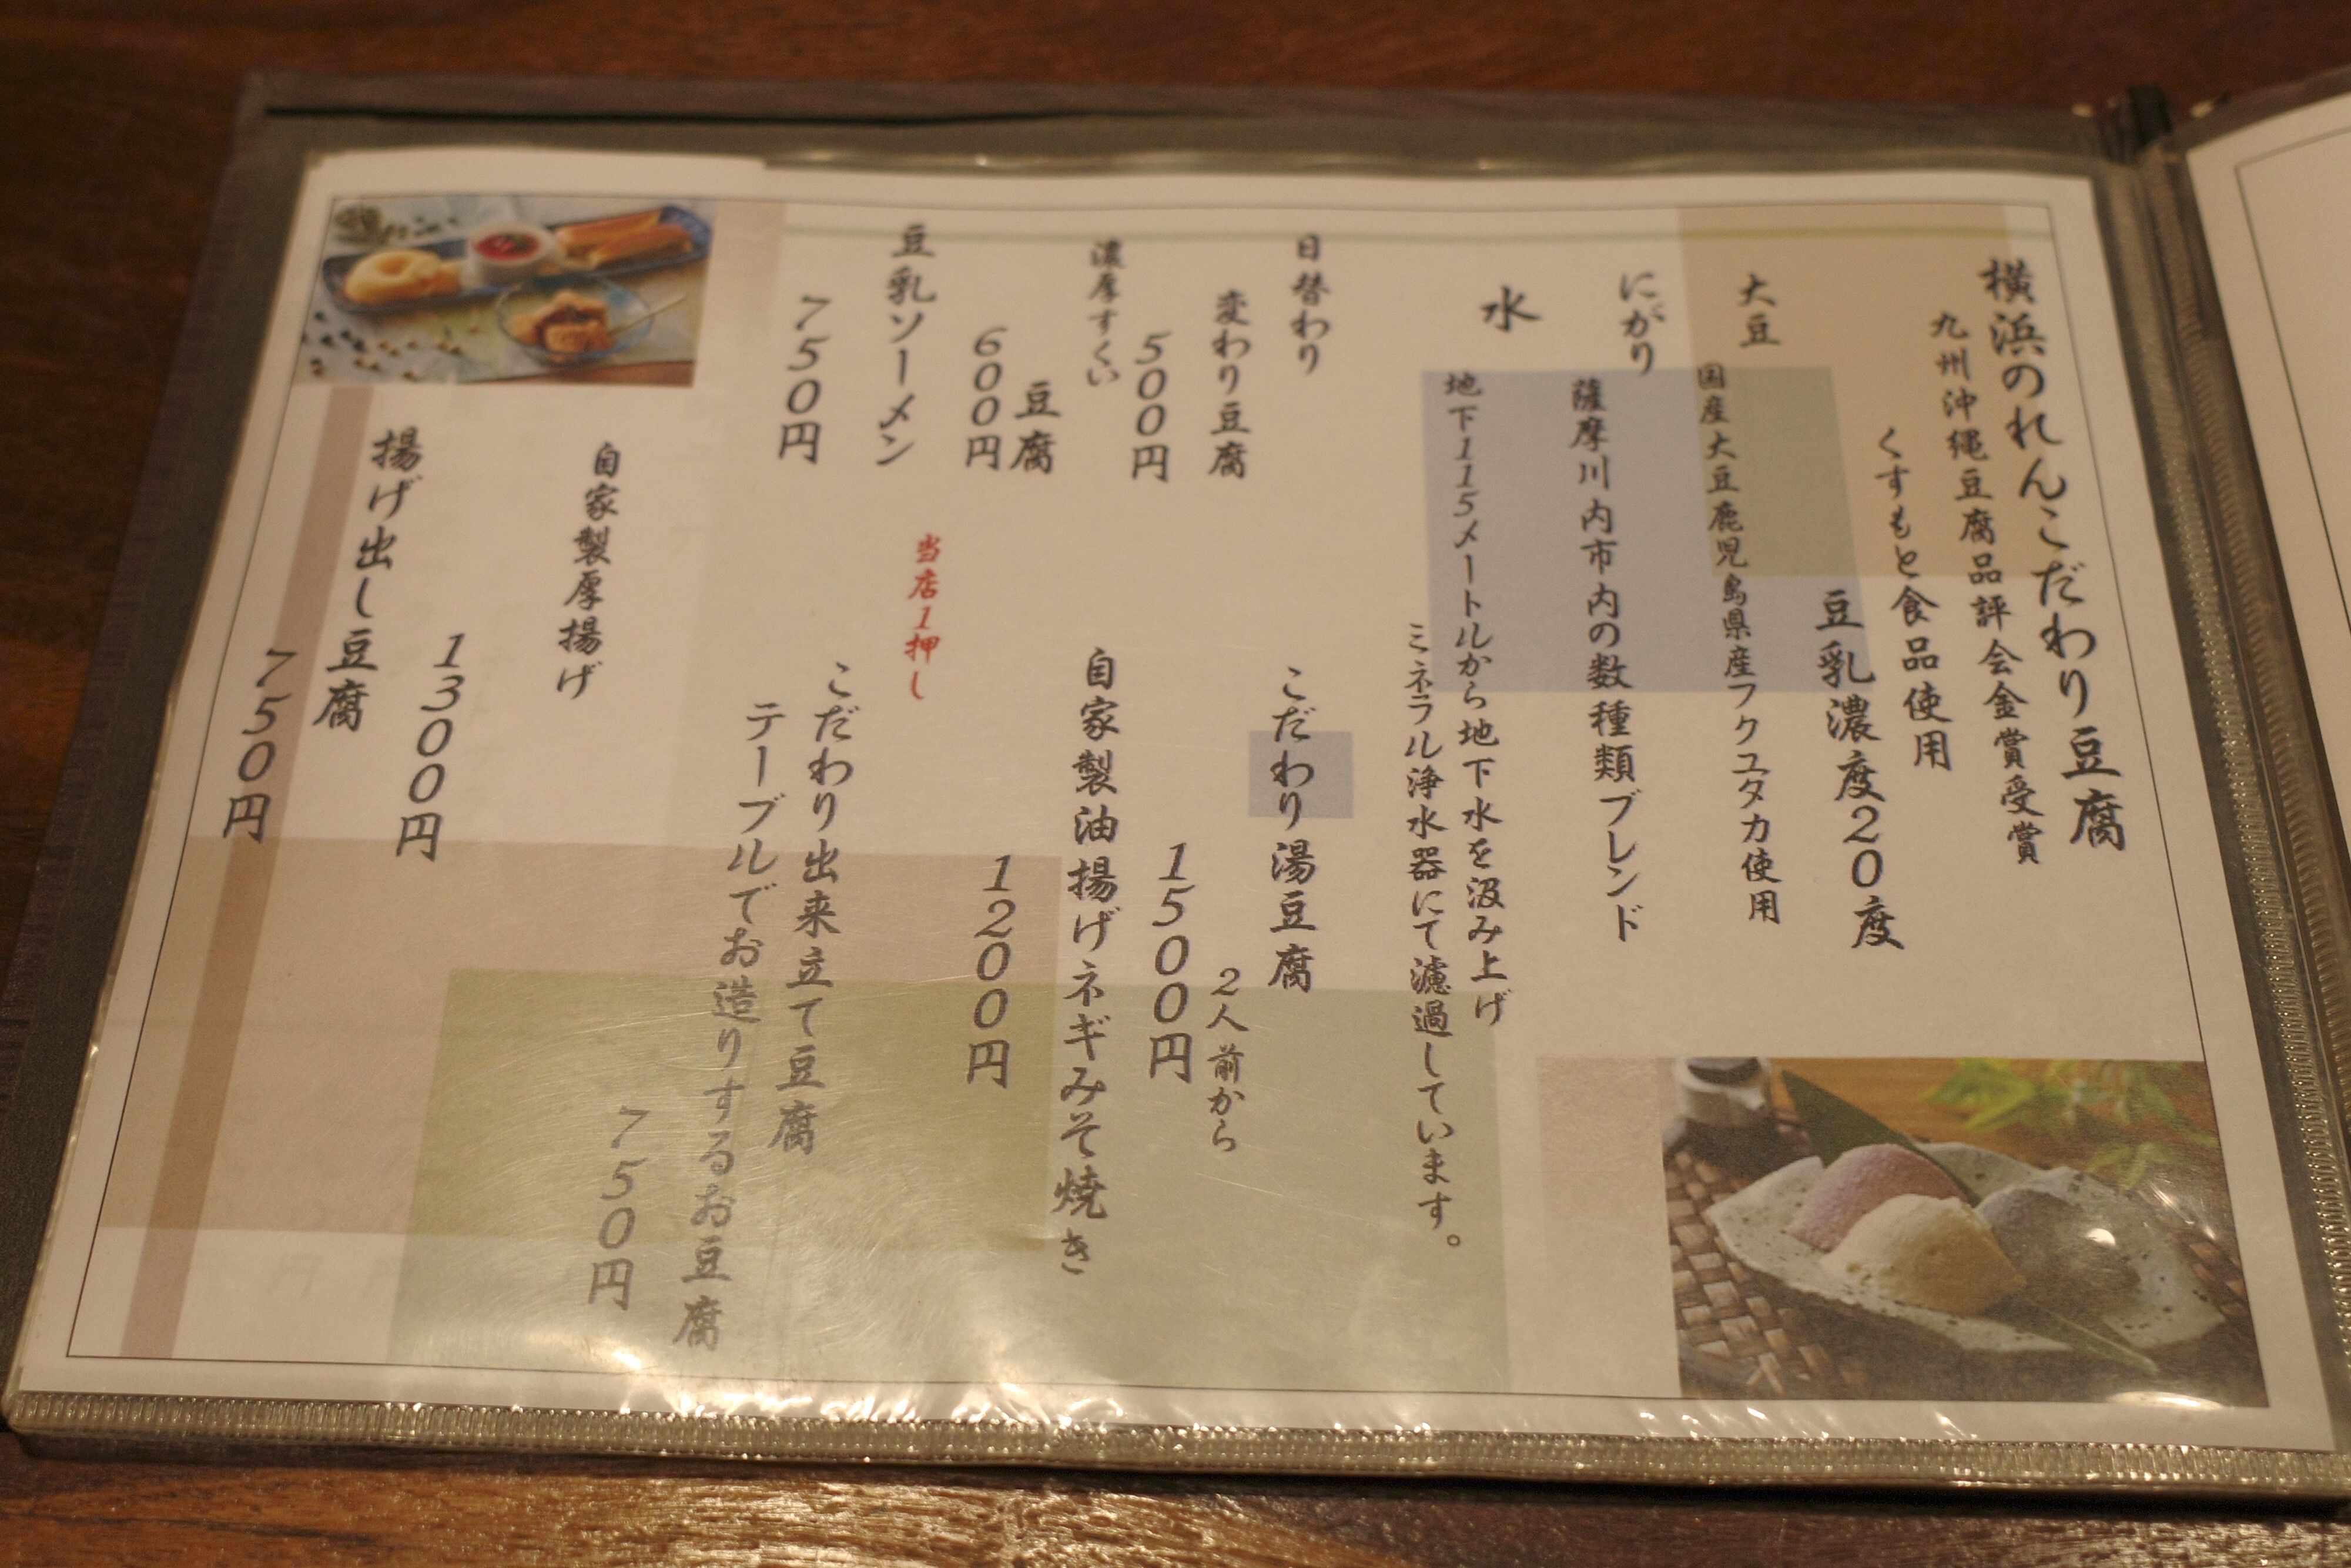 横浜のれんこだわり豆腐
九州沖縄豆腐品評会金賞受賞
くすもと食品使用
豆乳濃度20度
大豆
国産大豆鹿児島県産フクユタカ使用
にがり
薩摩川内市内の数種類ブレンド
水
地下115メートルから地下水を汲み上げ
ミネラル浄水器にて濾過しています。
日替わり
変わり豆腐
500円
濃厚すくい
豆腐
600円
豆乳ソーメン
750円
こだわり湯豆腐
2人前から
1500円
自家製油揚げネギみそ焼き
1200円
当店1押し
こだわり出来立て豆腐
テーブルでお造りするお豆腐
750円
自家製厚揚げ
1300円
揚げ出し豆腐
750円